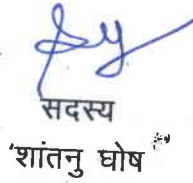 सदस्य
'शांतनु घोष"